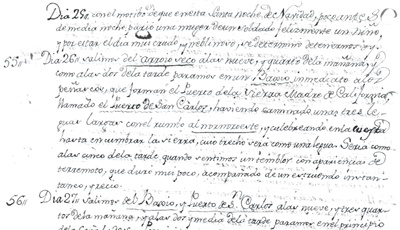 Dia 25,, con el motivo de que en esta Santa noche de Navidad, poco antes
de media noche pario una muger de un soldado felizmente un niño,
y por estar el dia mui crudo, y neblinoso, se determinó detenernos oy.
55,, Dia 26,, salimos del arroio seco a las nueve, y quarto de la mañana, y
como a las dos de la tarde paramos en un Baxio inmediato a los
peñascos, que forman el Puerto de la Sierra Madre de California,
llamado el Puerto de San Carlos, haviendo caminado unas tres le-
guas largas con el rumbo al nornoroeste, y culebreando en la cuesta
hasta encumbrar la sierra, cuio trecho sera como una legua. Seria como
a las cinco de la tarde, quando sentimos un temblor con apariencias de
terremoto, que duró mui poco, acompañado de un estruendo instan-
taneo, y recio.
56,, Dia 27,, salimos del Baxio, y Puerto de Sn. Carlos a las nueve, y tres quar-
tos de la mañana, y a las dos y media de la tarde paramos en el principio